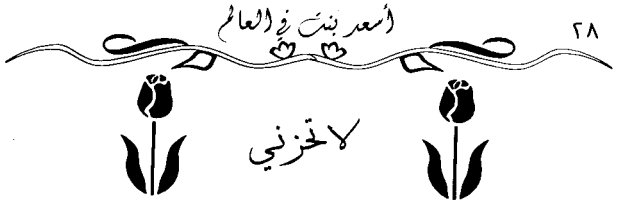 ٢٨
أسعد بنت في العالم
لا تحزني